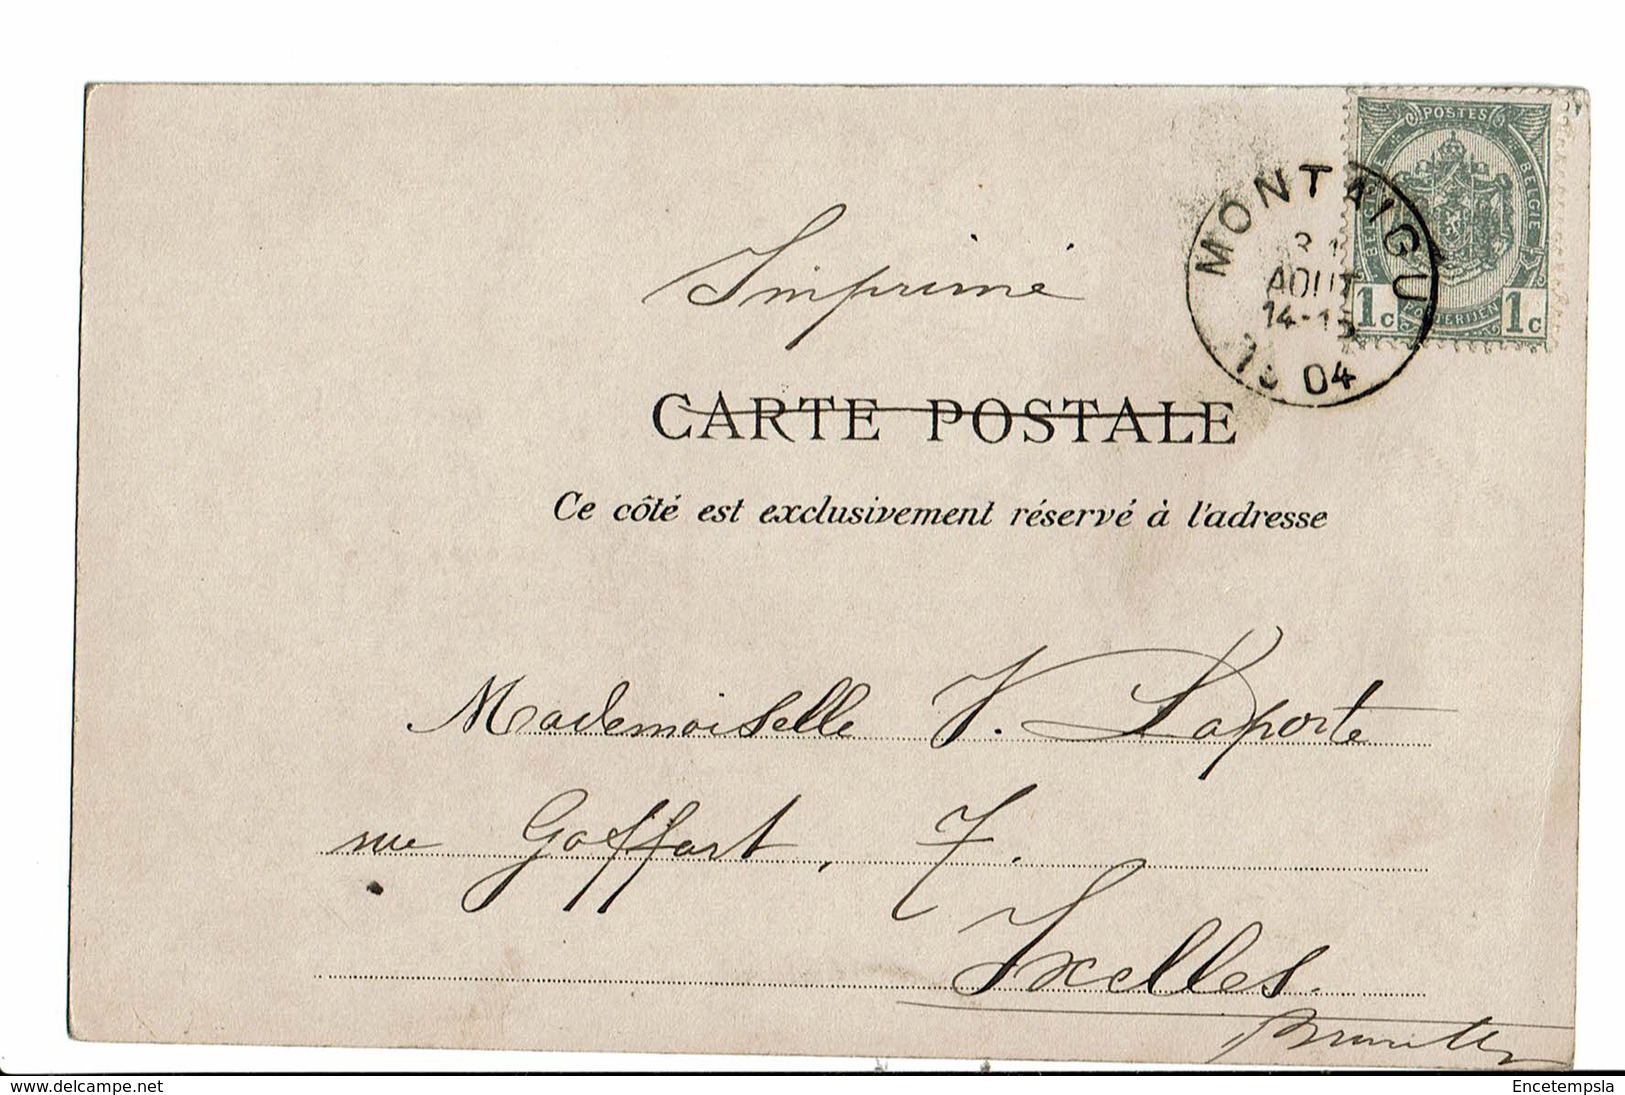 POSTES
BELGIQUE BELGIE
POSTERIJEN
1c 1c
MONTAIGU
31
AOUT
14-15
1904
Imprimé
CARTE POSTALE
Ce côté est exclusivement réservé à l'adresse
Mademoiselle V. Laporte
rue Goffart, 7.
Ixelles.
Bruxelles
www.delcampe.net
Encetempsla